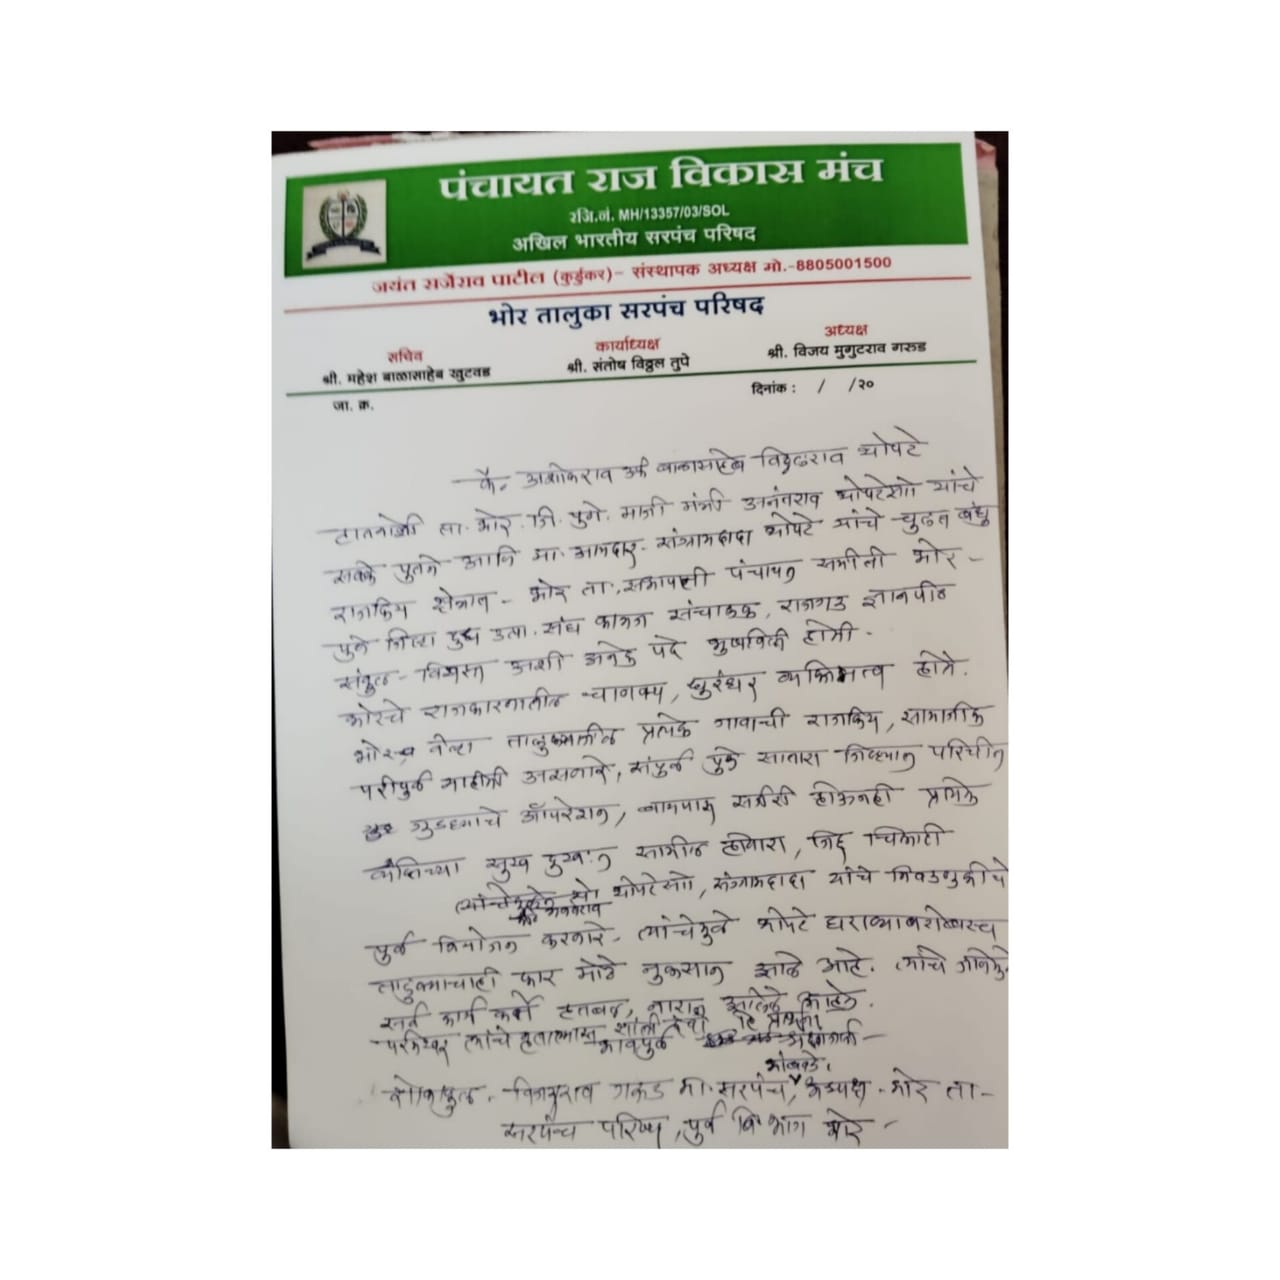 पंचायत राज विकास मंच
रजि.नं. MH/13357/03/SOL
अखिल भारतीय सरपंच परिषद
जयंत राजेराव पाटील (कुर्डुकर)- संस्थापक अध्यक्ष मो.-8805001500
भोर तालुका सरपंच परिषद
सचिव कार्याध्यक्ष अध्यक्ष
श्री. महेश बाळासाहेब खुटवड श्री. संतोष विठ्ठल तुपे श्री. विजय मुगुटराव गरुड
जा. क्र. दिनांक : / /२०
कै. अशोकराव उर्फ बाळासाहेब विठ्ठलराव थोपटे
ता. भोर. जि. पुणे. माजी मंत्री अनंतराव थोपटेसो यांचे
सख्खे पुतणे आणि मा. आमदार. संग्रामदादा थोपटे यांचे चुलत बंधु
राजकिय क्षेत्रात - भोर ता. सभापती पंचायत समीती भोर -
पुणे जिल्हा दुध उत्पा. संघ कात्रज संचालक, राजगड ज्ञानपीठ
संकुल - विश्वस्त अशी अनेक पदे भुषविली होती.
भोरचे राजकारणातील चाणक्य, धुरंधर व्यक्तिमत्व होते.
भोर वेल्हा तालुक्यातील प्रत्येक गावाची राजकिय, सामाजीक
परीपुर्ण माहीती असणारे, संपुर्ण पुणे सातारा जिल्ह्यात परिचीत
गुडघ्याचे ऑपरेशन, बायपास सर्जरी होऊनही प्रत्येक
व्यक्तिच्या सुख दुखात सामील होणारा, जिद्द चिकाटी
थोपटेसो, संग्रामदादा यांचे निवडणुकीचे
अनंतराव
पुर्ण नियोजन करणारे. त्यांचेमुळे थोपटे घराण्याबरोबरच
तालुक्याचाही फार मोठे नुकसान झाले आहे. त्यांचे
सर्व कार्यकर्ते हतबल, नाराज झालेले आहेत.
परमेश्वर त्यांचे शांती देवो हि प्रार्थना
भावपुर्ण
भोंगवली
शोकाकुल. विजयराव गरुड मा. सरपंच, अध्यक्ष. भोर ता-
सरपंच परिषद, पुर्व विभाग भोर -